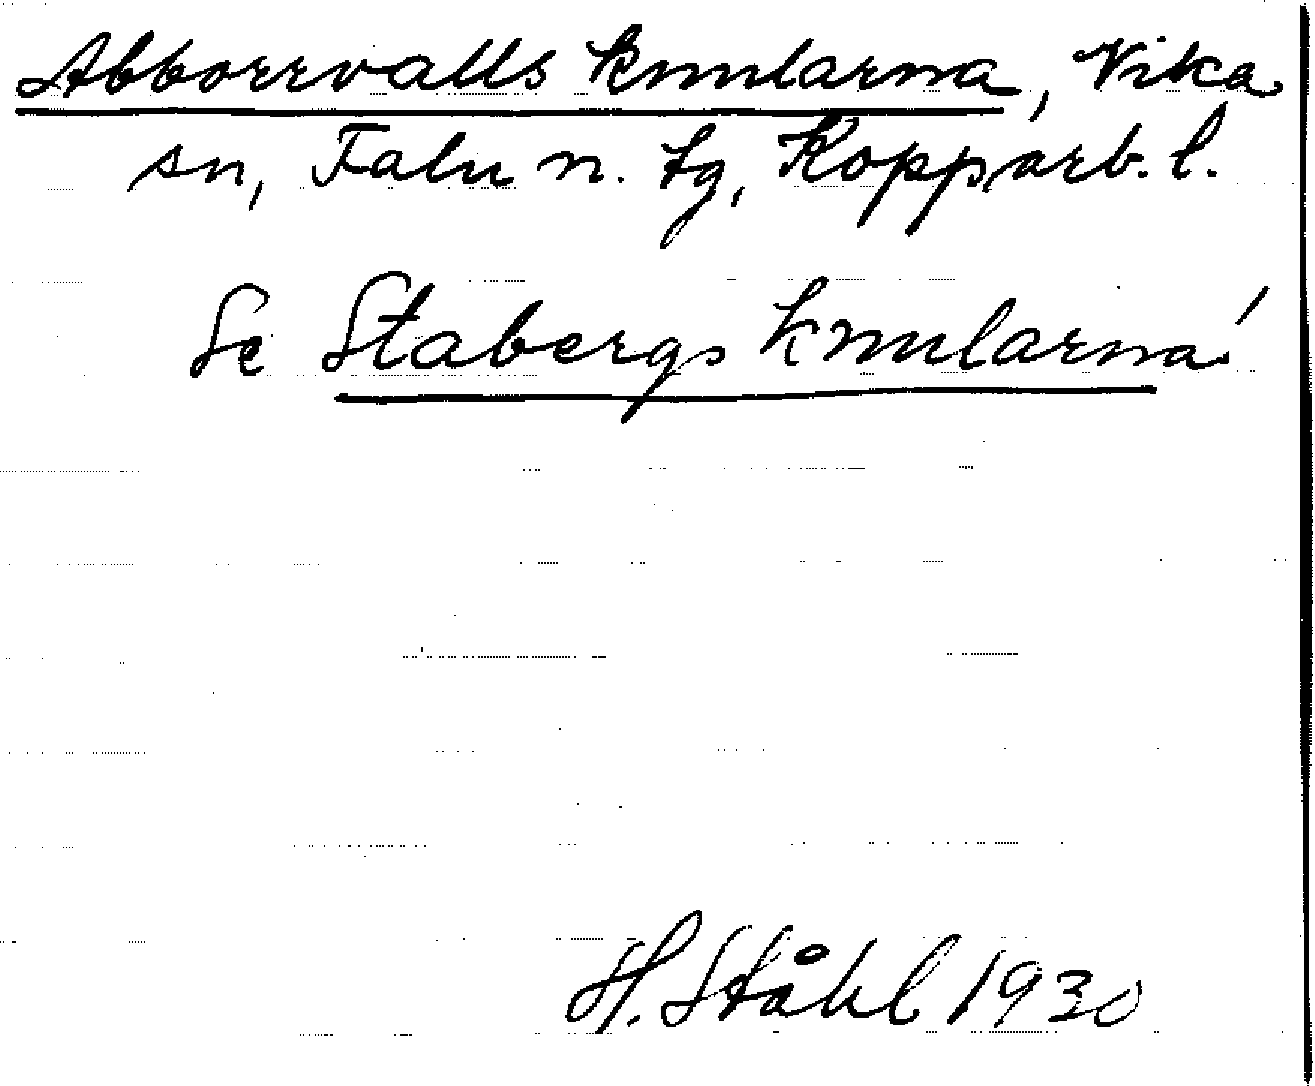 Abborrvalls knularna, Vika
sn, Falu n. tg, Kopparb. l.
Se Stabergs knularna!
H. Ståhl 1930